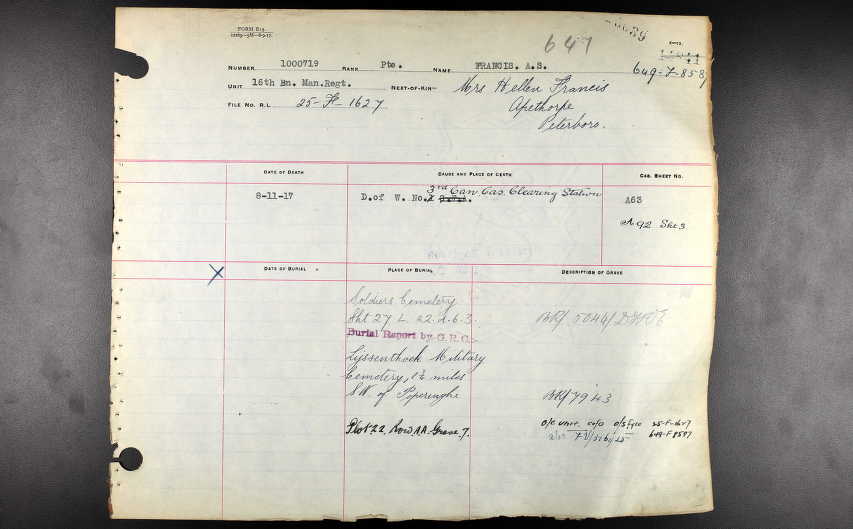 FORM 813.
647
NUMBER 1000719 RANK Pte. NAME FRANCIS. A.S.
649-F-8587
UNIT 16th Bn. Man.Regt. NEXT-OF-KIN— Mrs Hellen Francis
FILE NO. R.L. 25-F-1627 Apethorpe
Peterboro.
DATE OF DEATH CAUSE AND PLACE OF DEATH CAS. SHEET NO.
8-11-17 D.of W. No. 3rd Can. Cas. Clearing Station A63
A 92 Sht 3
DATE OF BURIAL PLACE OF BURIAL DESCRIPTION OF GRAVE
Soldiers Cemetery
Sht 27 L. 22.d.6.3. BR/5044/
Burial Report by G.R.C.
Lijssenthoek Military
Cemetery, 1¾ miles
S.W. of Poperinghe BR/7943
Plot 22. Row AA Grave 7. O/C Unit. 25-F-1627
649-F-8587